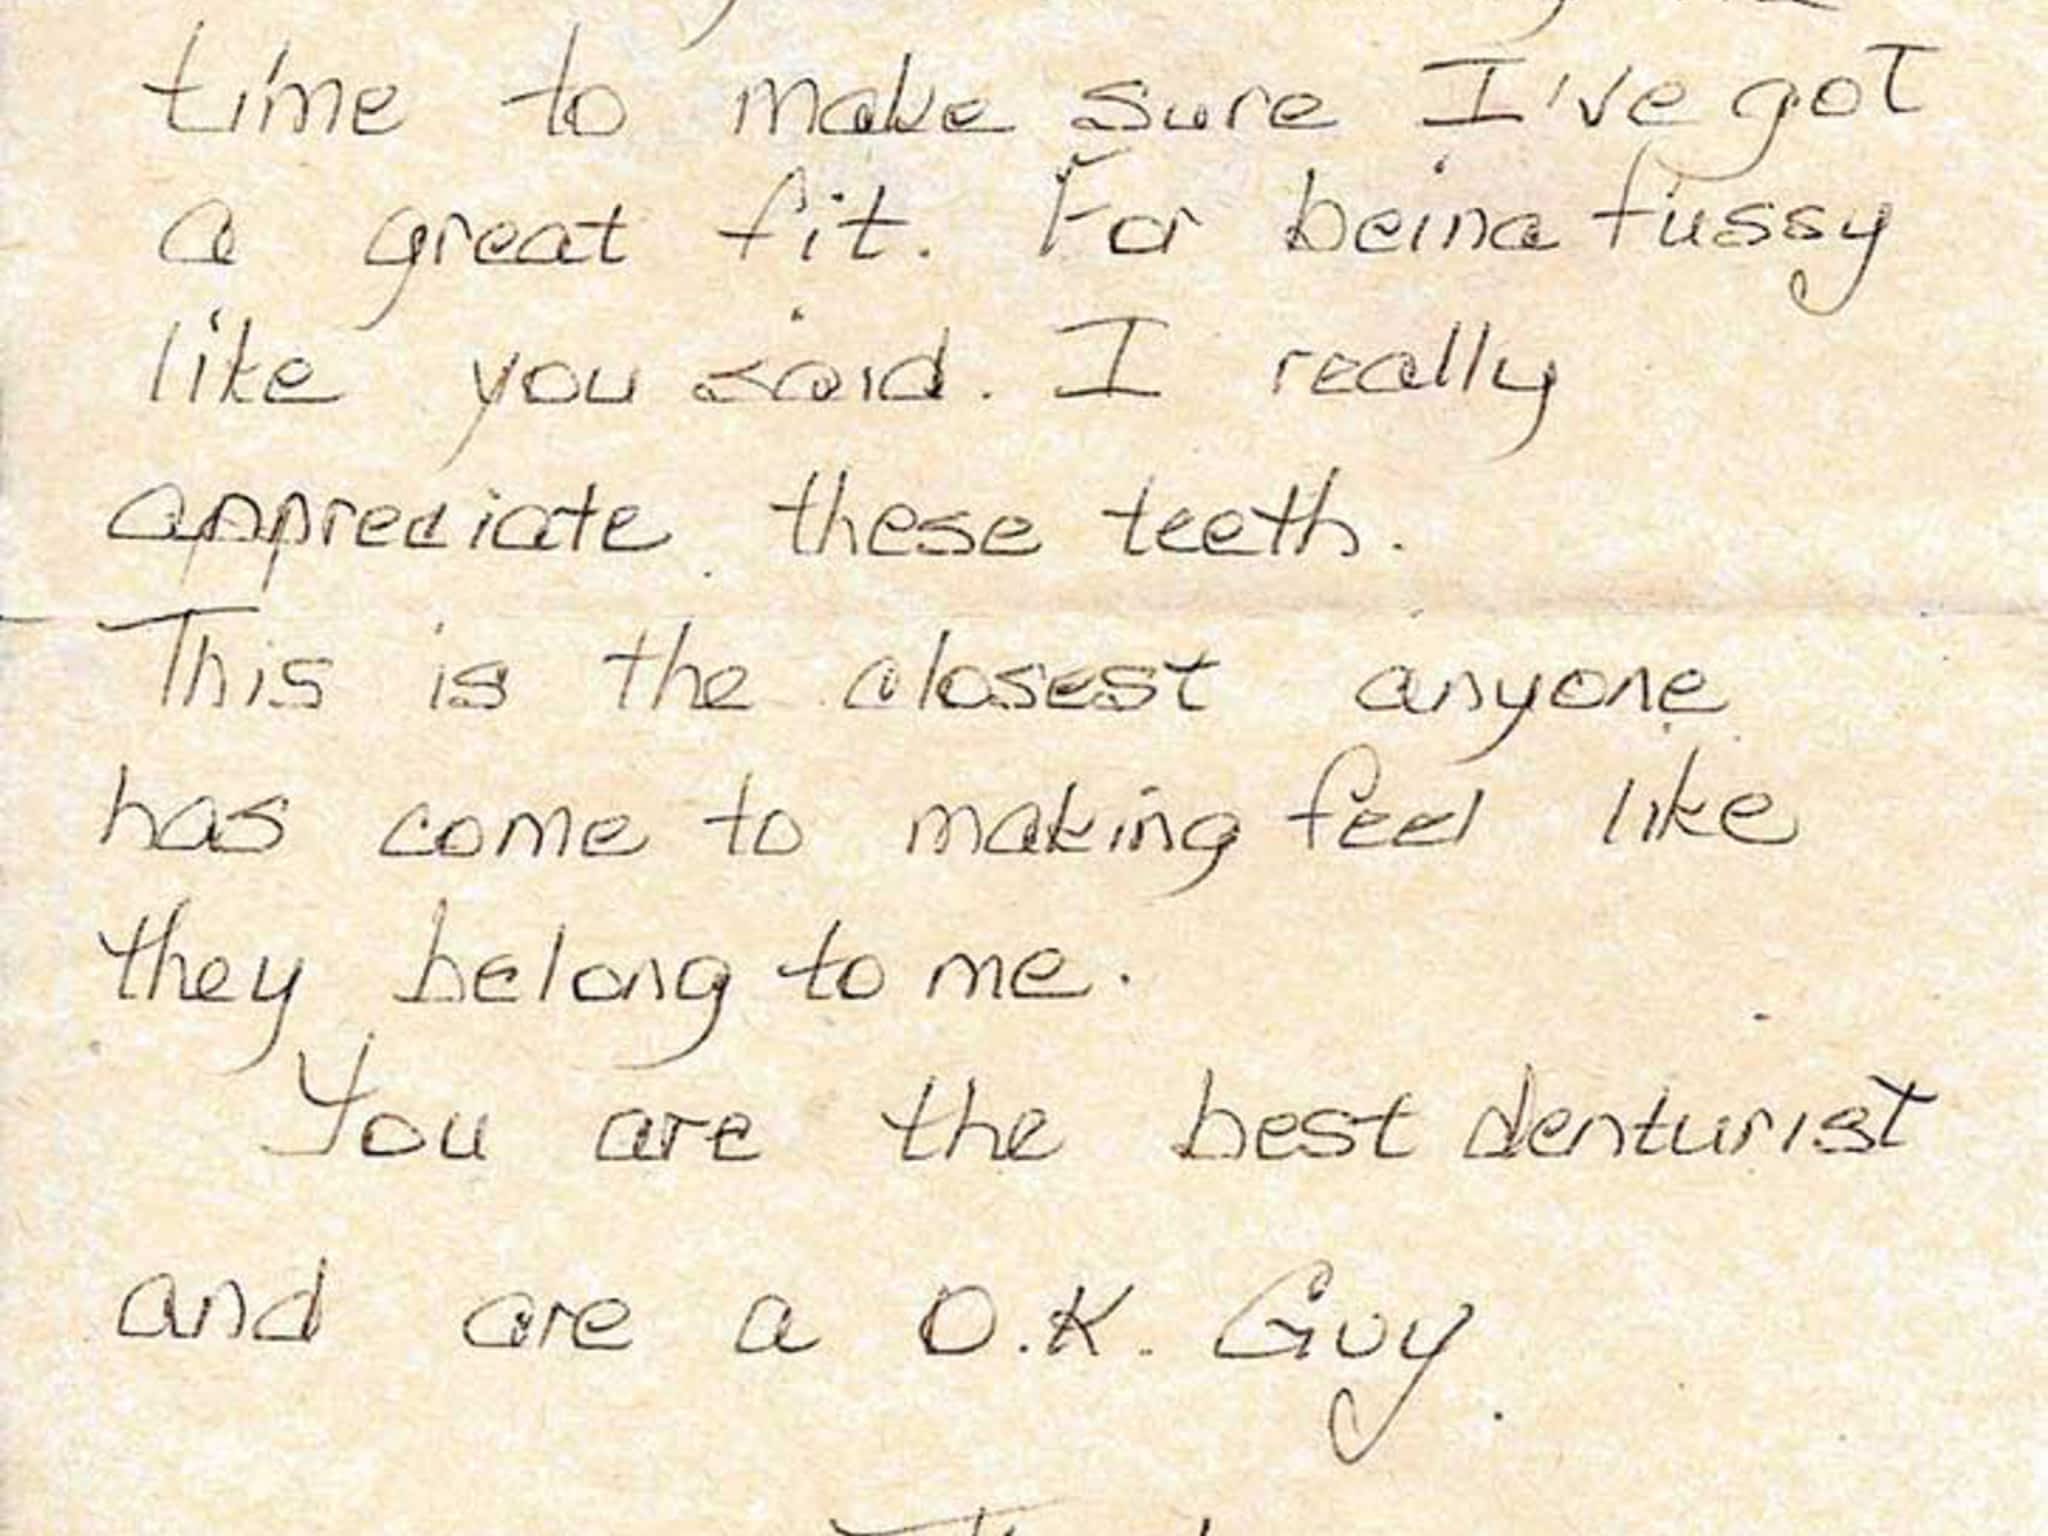 time to make sure I've got
a great fit. For being fussy
like you said. I really
appreciate these teeth.
This is the closest anyone
has come to making feel like
they belong to me.
You are the best denturist
and are a O.K. Guy.